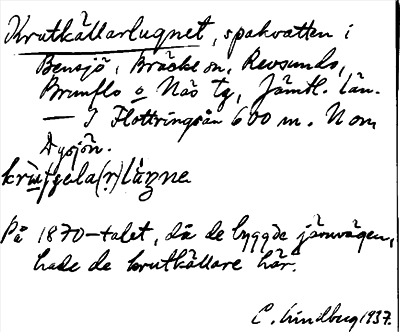 Krutkällarlugnet, spakvatten i
Bensjö, Bräcke sn, Revsunds,
Brunflo o Näs tg, Jämtl. län.
— I Flottringsån 600 m. N om
Dysjön.
På 1870-talet, då de byggde järnvägen,
hade de krutkällare här.
C. Lindberg 1937.